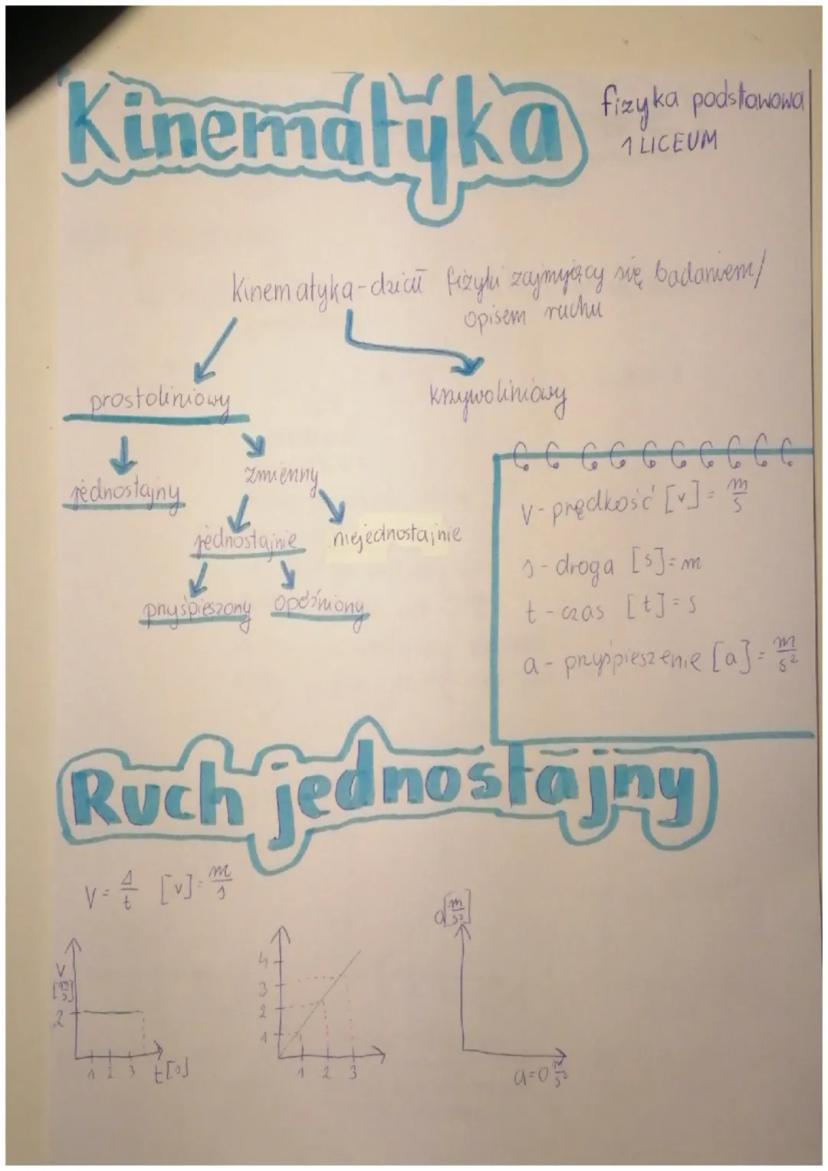 Kinematyka
fizyka podstawowa
1 LICEUM
Kinematyka - dział fizyki zajmujący się badaniem/
opisem ruchu
prostoliniowy
krzywoliniowy
jednostajny
zmienny
jednostajnie
niejednostajnie
przyśpieszony
opóźniony
v - prędkość [v] = m/s
s - droga [s] = m
t - czas [t] = s
a - przyśpieszenie [a] = m/s²
Ruch jednostajny
V = s/t [v] = m/s
v [m/s]
2
1 2 3 t[s]
4
3
2
1
1 2 3
a[m/s²]
a=0 m/s²